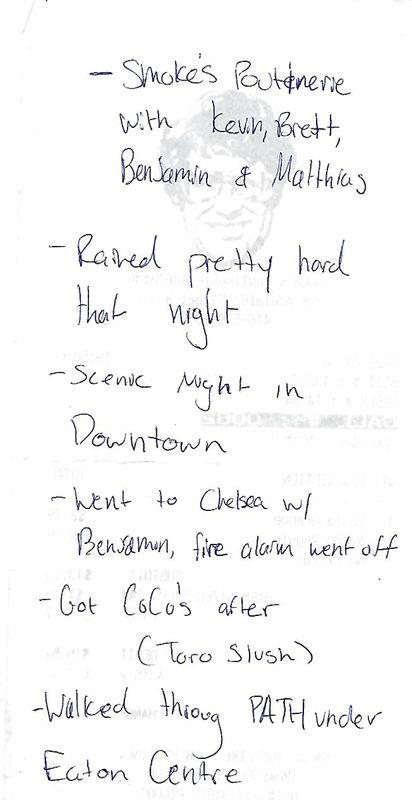 - Smoke's Poutinerie
with Kevin, Brett,
Benjamin & Matthias
- Rained pretty hard
that night
- Scenic Night in
Downtown
- Went to Chelsea w/
Benjamin, fire alarm went off
- Got CoCo's after
(Toro Slush)
- Walked throug PATH under
Eaton Centre